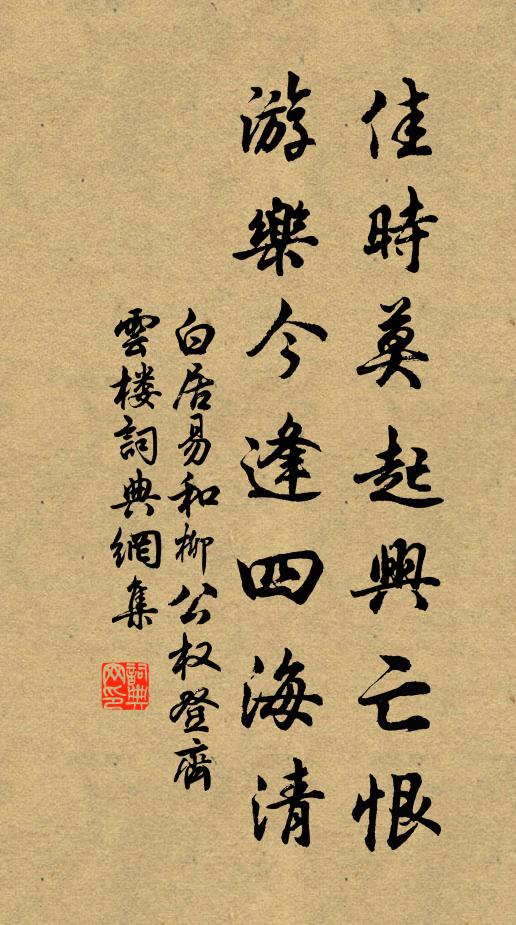 佳時莫起興亡恨
游樂今逢四海清
白居易和柳公权登齊
雲楼詞典網集
詞典
网印